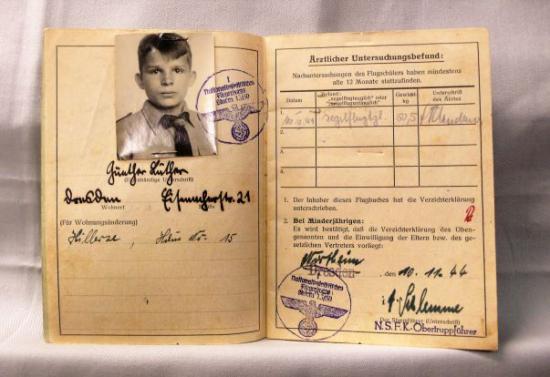 Günther Luther
(Eigenhändige Unterschrift)
Dresden Eisenacherstr. 21
Wohnort
(Für Wohnungsänderung)
Haus Nr. 15
Nationalsozialistisches
Fliegerkorps
Ärztlicher Untersuchungsbefund:
Nachuntersuchungen des Flugschülers haben mindestens
alle 12 Monate stattzufinden.
Datum
Befund:
„segelflugtauglich" oder
„segelfluguntauglich"
Gewicht
kg
Unterschrift
des Arztes
1. segelflugtgl. 60,5
2.
3.
4.
1. Der Inhaber dieses Flugbuches hat die Verzichterklärung
unterschrieben.
2. Bei Minderjährigen:
Es wird bestätigt, daß die Verzichterklärung des Oben-
genannten und die Einwilligung der Eltern bzw. des ge-
setzlichen Vertreters vorliegt:
Dresden, den 10.11.44
Nationalsozialistisches
Fliegerkorps
Schlemme
(Unterschrift)
N.S.F.K. Obertruppführer